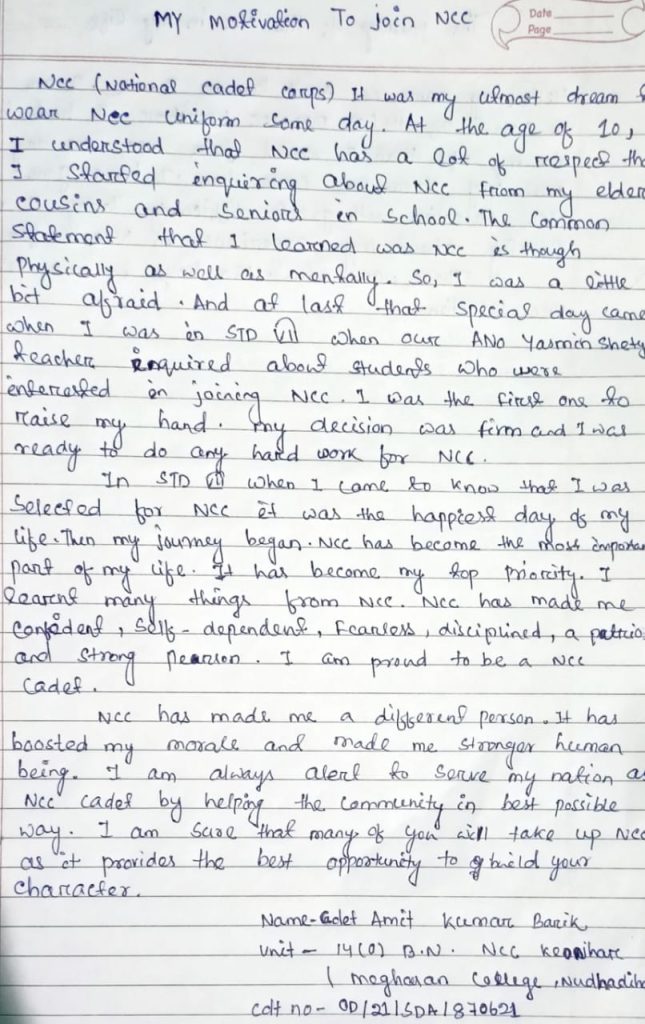 MY motivation To join NCC
Date
Page
Ncc (National cadet corps) It was my utmost dream
wear Ncc uniform some day. At the age of 10,
I understood that NCC has a lot of respect
I started enquiring about NCC from my elder
cousins and seniors in school. The common
statement that I learned was NCC is though
physically as well as mentally. So, I was a little
bit afraid. And at last that special day came
when I was in STD VII when our ANO Yasmin Shety
teacher enquired about students who were
interested in joining NCC. I was the first one to
raise my hand. My decision was firm and I was
ready to do any hard work for NCC.
In STD VII when I came to know that I was
selected for NCC it was the happiest day of my
life. Then my journey began. NCC has become the most importan
part of my life. It has become my top priority. I
learnt many things from NCC. NCC has made me
confident, self-dependent, Fearless, disciplined, a patrio
and strong pearson. I am proud to be a NCC
cadet.
NCC has made me a different person. It has
boosted my morale and made me stronger human
being. I am always alert to serve my nation as
NCC cadet by helping the community in best possible
way. I am sure that many of you will take up NCC
as it provides the best opportunity to build your
character.
Name-Cadet Amit Kumar Barik
Unit - 14(O) B.N. NCC Keonjhar
( meghasan College, Nudhadih
cdt no- OD/21/SDA/870621